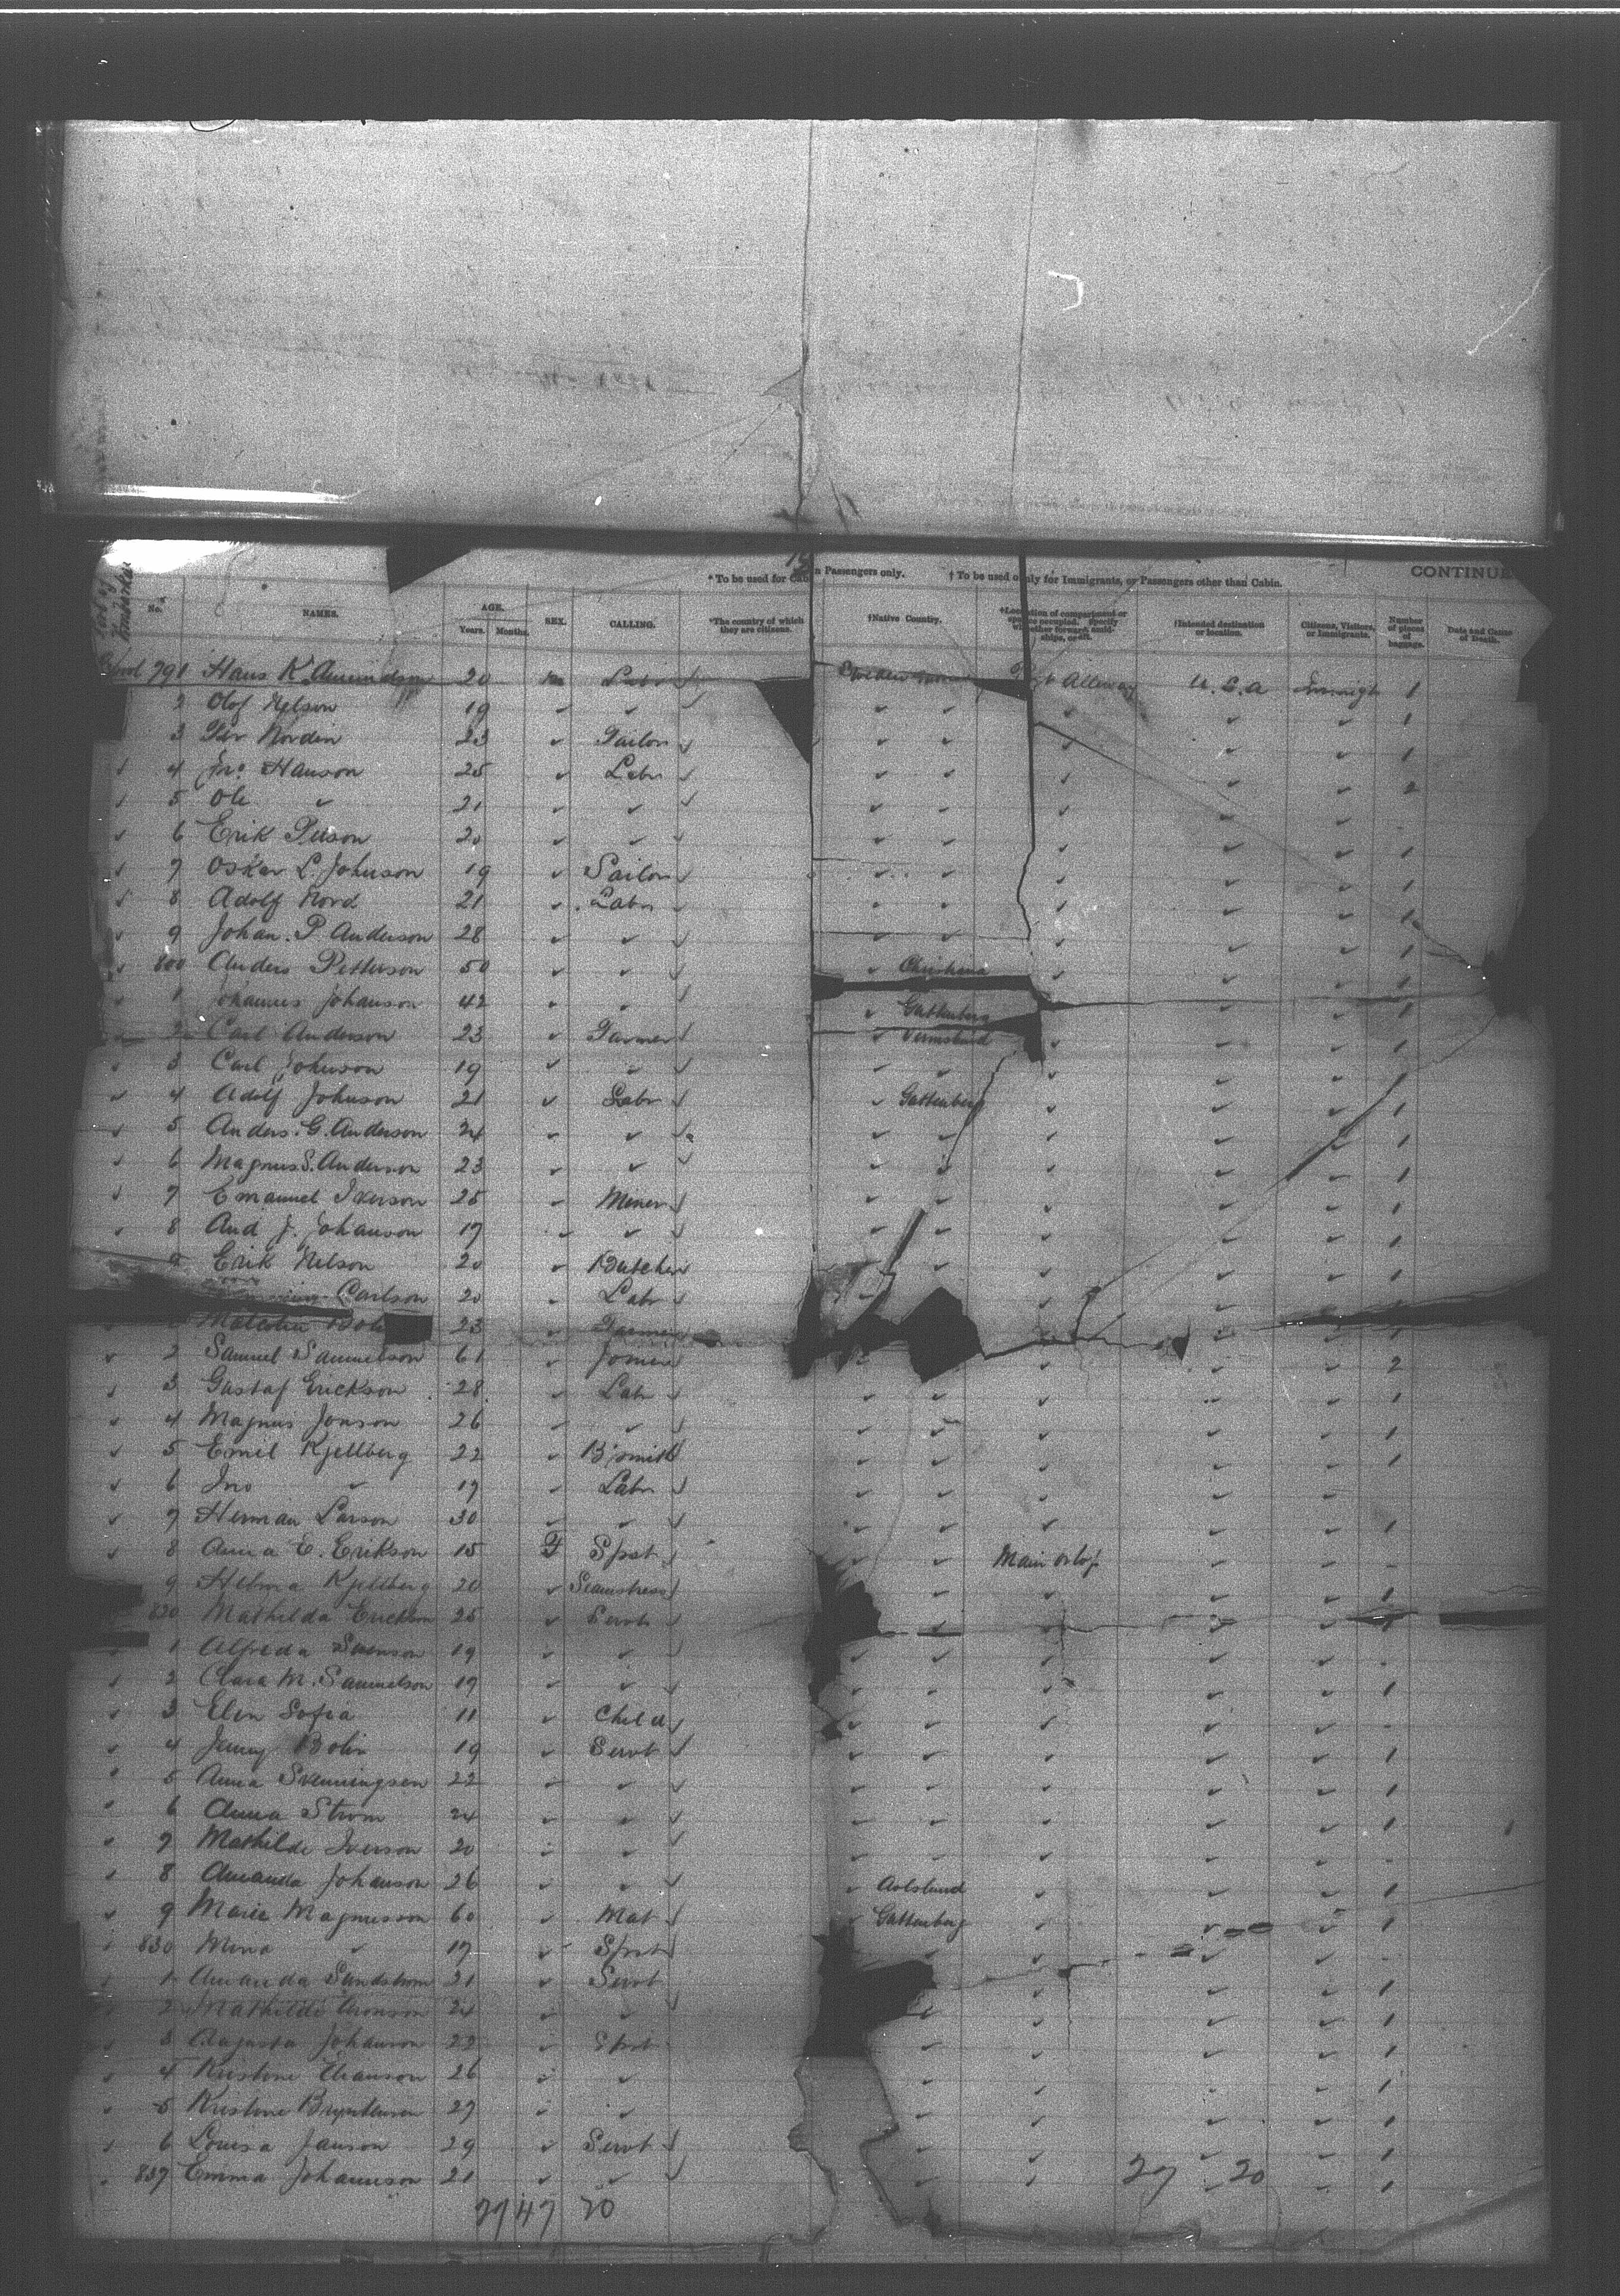 18
* To be used for Cabin Passengers only. † To be used only for Immigrants, or Passengers other than Cabin. CONTINUE
Port of Embarkn No. NAMES. AGE. Years. Months. SEX. CALLING. *The country of which they are citizens. †Native Country. †Location of compartment or space occupied. Specify whether forward, amidships, or aft. †Intended destination or location. Citizens, Visitors, or Immigrants. Number of pieces of baggage. Date and Cause of Death.
791 Hans K Amundson 20 m Labr Sweden Alleway U.S.A Immigt 1
2 Olof Nelson 19 ✓ ✓ ✓ ✓ ✓ ✓ ✓ 1
3 Per Nordin 23 ✓ Tailor ✓ ✓ ✓ ✓ ✓ 1
4 Jno Hanson 25 ✓ Labr ✓ ✓ ✓ ✓ ✓ 2
5 Ole ✓ 21 ✓ ✓ ✓ ✓ ✓ ✓ ✓
6 Erik Peterson 20 ✓ ✓ ✓ ✓ ✓ ✓ ✓ 1
7 Oskar L. Johnson 19 ✓ Sailor ✓ ✓ ✓ ✓ ✓ 1
8 Adolf Nord 21 ✓ Labr ✓ ✓ ✓ ✓ ✓ 1
9 Johan. P Anderson 28 ✓ ✓ ✓ ✓ ✓ ✓ ✓ 1
800 Anders Petterson 50 ✓ ✓ ✓ Christiana ✓ ✓ ✓ 1
1 Johannes Johanson 42 ✓ ✓ ✓ Gattenberg ✓ ✓ ✓ 1
2 Carl Anderson 23 ✓ Farmer ✓ Vermslund ✓ ✓ ✓ 1
3 Carl Johnson 19 ✓ ✓ ✓ ✓ ✓ ✓ ✓ 1
4 Adolf Johnson 21 ✓ Labr ✓ Gattenberg ✓ ✓ ✓ 1
5 Anders. G. Anderson 24 ✓ ✓ ✓ ✓ ✓ ✓ ✓ 1
6 Magnus S. Anderson 23 ✓ ✓ ✓ ✓ ✓ ✓ ✓ 1
7 Emanuel Iverson 25 ✓ Miner ✓ ✓ ✓ ✓ ✓ 1
8 And J. Johanson 17 ✓ ✓ ✓ ✓ ✓ ✓ ✓ 1
9 Erik Nelson 20 ✓ Butcher ✓ ✓ ✓ ✓ ✓ 1
Carlson 20 ✓ Labr ✓ ✓ ✓
23 ✓ Farmer ✓ ✓ ✓ 1
2 Samuel Samuelson 61 ✓ Joiner ✓ ✓ ✓ ✓ 2
3 Gustaf Erickson 28 ✓ Labr ✓ ✓ ✓ ✓ ✓ 1
4 Magnus Jonson 26 ✓ ✓ ✓ ✓ ✓ ✓ ✓ 1
5 Emil Kjellberg 22 ✓ B'smith ✓ ✓ ✓ ✓ ✓ 1
6 Jno ✓ 17 ✓ Labr ✓ ✓ ✓ ✓ ✓
7 Herman Larson 30 ✓ ✓ ✓ ✓ ✓ ✓ ✓ 1
8 Anna E. Erikson 15 F Spst ✓ ✓ Main orlop ✓ ✓ -
9 Helma Kjellberg 20 ✓ Seamstress ✓ ✓ ✓ ✓ 1
820 Mathilda Erickson 25 ✓ Servt ✓ ✓ ✓ 1
1 Alfreda Svenson 19 ✓ ✓ ✓ ✓ ✓ ✓ ✓ -
2 Clara M. Samuelson 19 ✓ ✓ ✓ ✓ ✓ ✓ ✓ 1
3 Elin Sofia 11 ✓ Child ✓ ✓ ✓ ✓ ✓ -
4 Jenny Bolin 19 ✓ Servt ✓ ✓ ✓ ✓ ✓ 1
5 Anna Svenningsen 22 ✓ ✓ ✓ ✓ ✓ ✓ ✓ 1
6 Anna Strom 24 ✓ ✓ ✓ ✓ ✓ ✓ ✓ 1
7 Mathilde Iverson 20 ✓ ✓ ✓ ✓ ✓ ✓ ✓ -
8 Amanda Johanson 26 ✓ ✓ ✓ Aolslund ✓ ✓ ✓ 1
9 Marie Magnusson 60 ✓ Mat ✓ Gattenberg ✓ ✓ ✓ 1
830 Mina ✓ 17 ✓ Spst ✓ ✓ ✓ ✓ -
1 Amanda Sandstrom 21 ✓ Servt ✓ ✓ 1
2 Mathilde Aronson 24 ✓ ✓ ✓ ✓ ✓ ✓ 1
3 Augusta Johanson 22 ✓ Spst ✓ ✓ ✓ ✓ 1
4 Kristine 26 ✓ ✓ ✓ ✓ ✓ ✓ 1
5 Kristine 27 ✓ ✓ ✓ ✓ ✓ ✓ 1
6 Louisa Janson 29 ✓ Servt ✓ ✓ ✓ ✓ 1
837 Emma Johanneson 21 ✓ ✓ ✓ ✓ ✓ ✓ 1
27 20
27 47 20